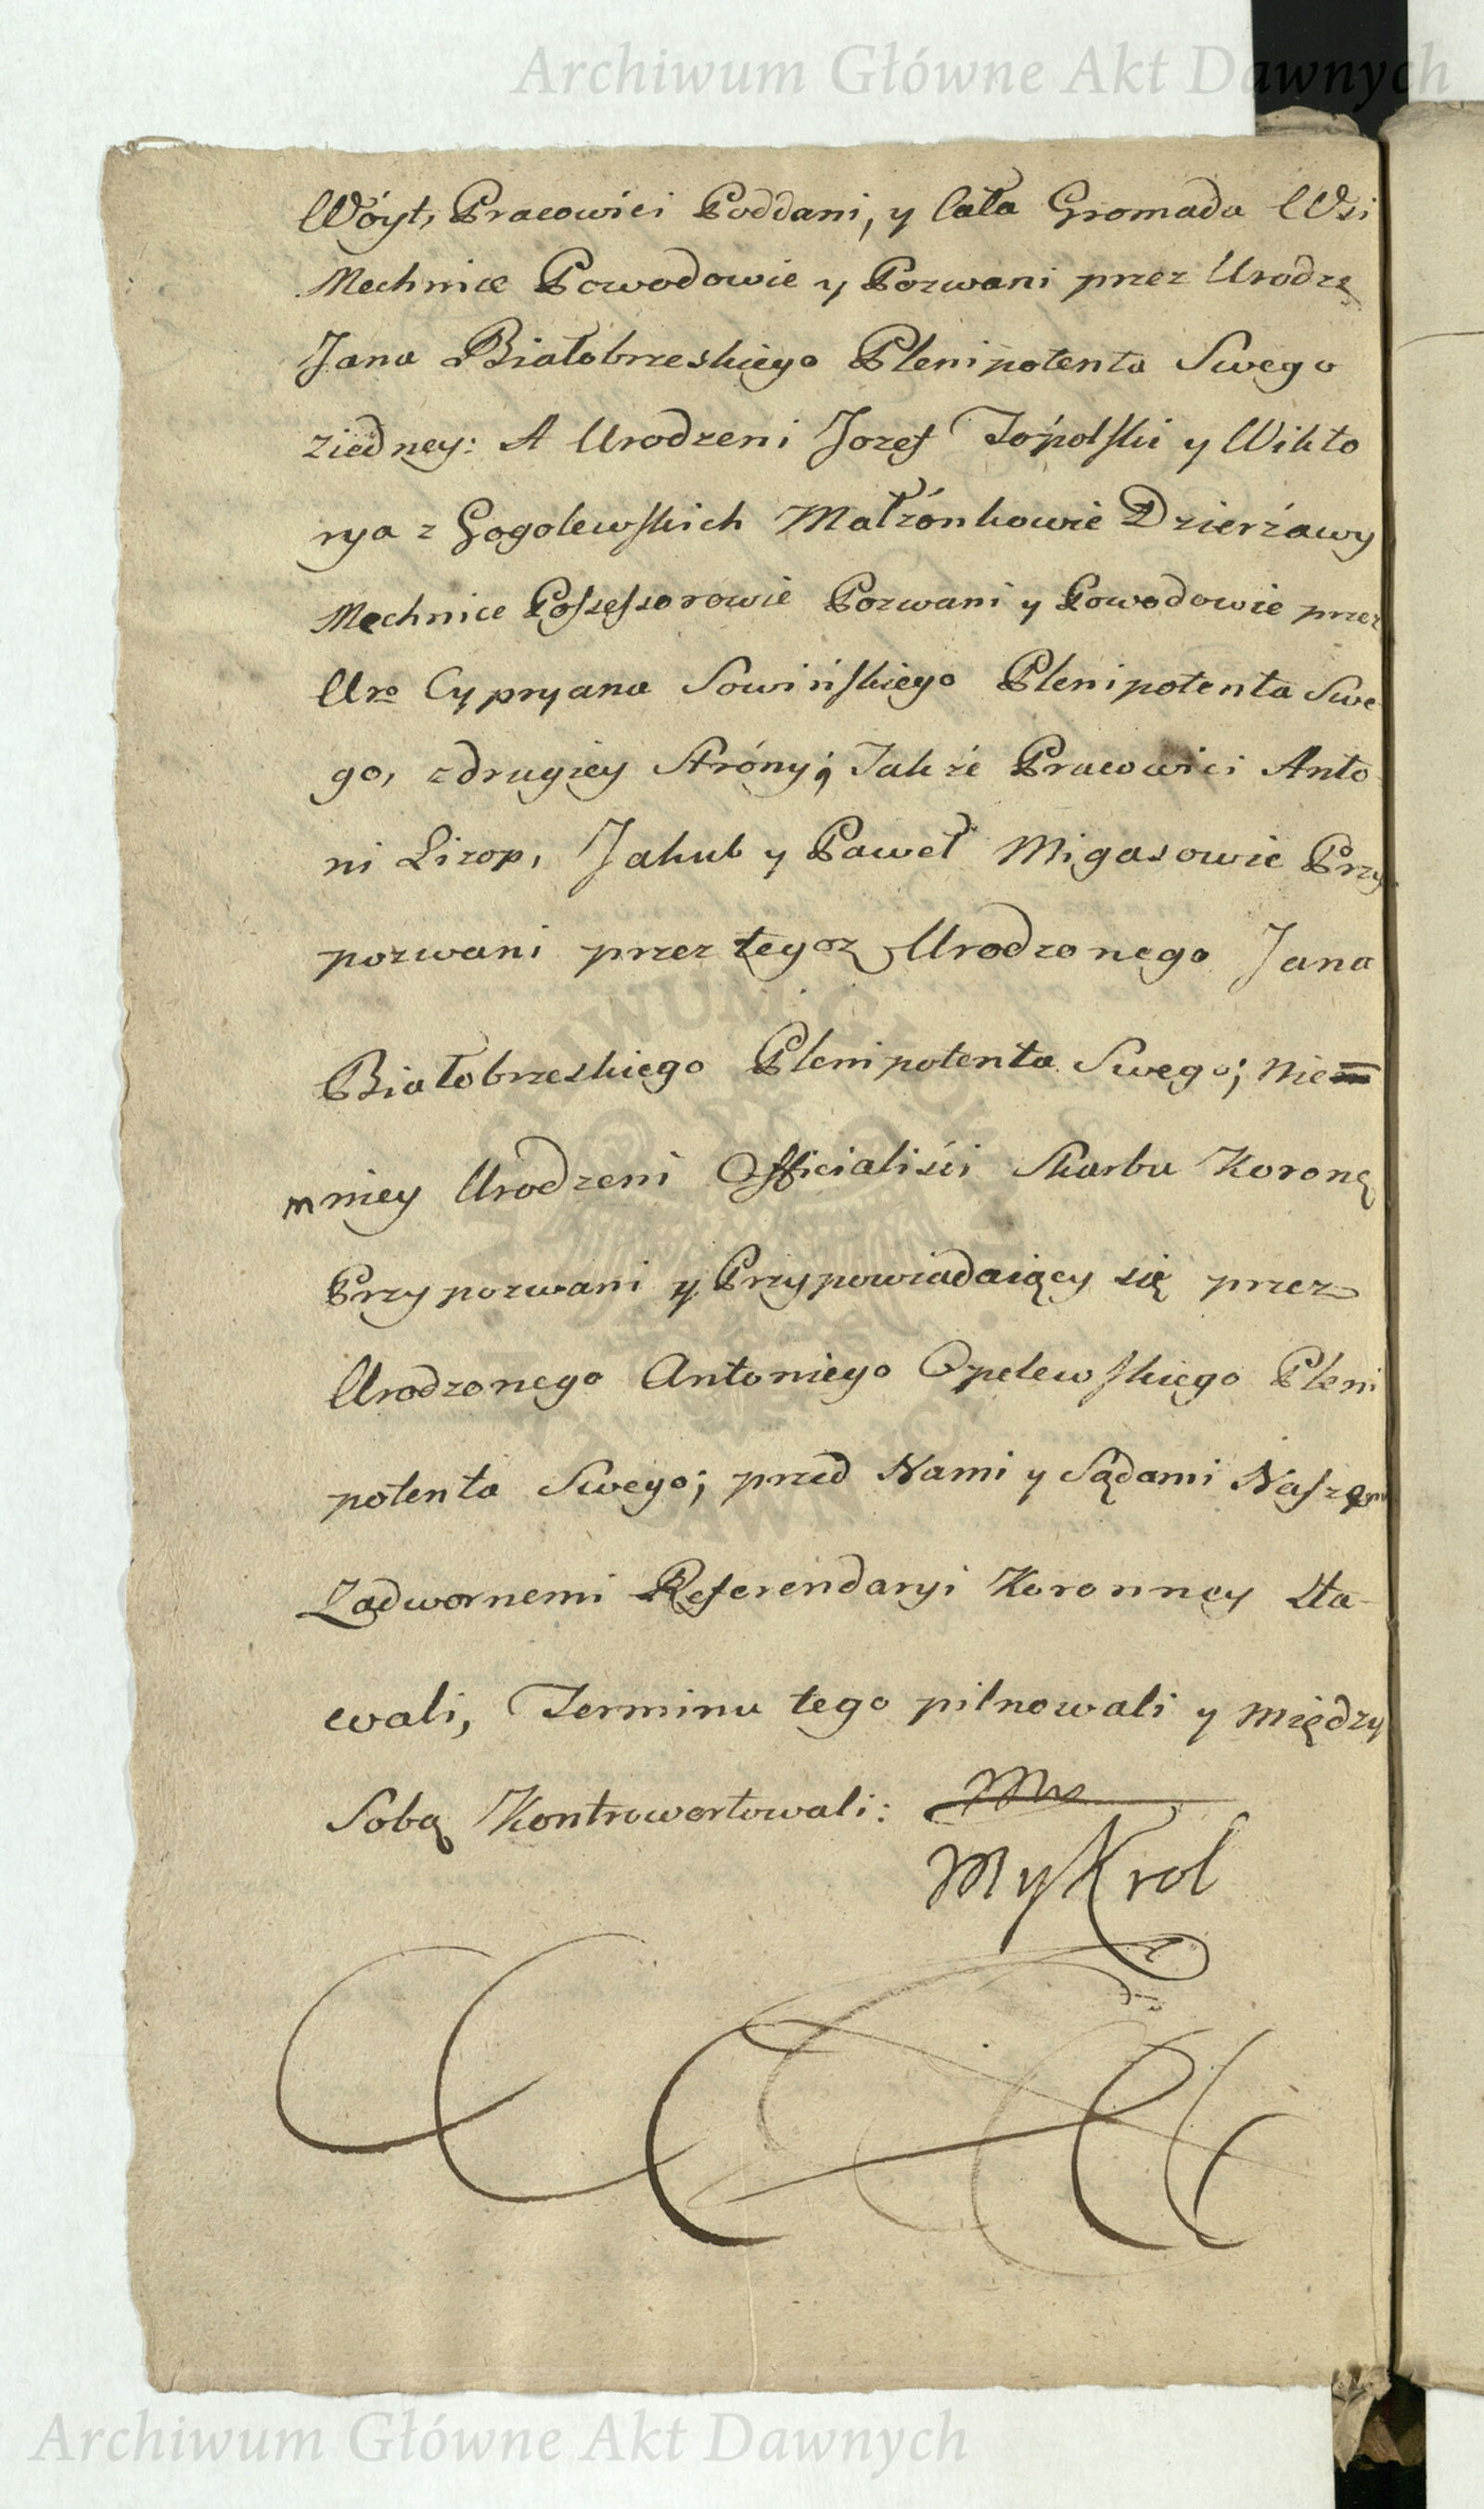 Archiwum Główne Akt Dawnych
Wóyt, Pracowici Poddani, y Cała Gromada Wsi
Mechnice Powodowie y Pozwani przez Urodzę
Jana Białobrzeskiego Plenipotenta Swego
ziedney: A Urodzeni Jozef Topolski y Wikto
rya z Gogolewskich Małżónkowie Dzierżawy
Mechnice Possessorowie Pozwani y Powodowie przez
Uro Cypryana Sowińskiego Plenipotenta Swe
go, zdrugiey Stróny; Także Pracowici Anto
ni Lizop, Jakub y Paweł Migasowie Przy
pozwani przez tegoz Urodzonego Jana
Białobrzeskiego Plenipotenta Swego; nie
mniey Urodzeni Officialiści Skarbu Koronę
Przypozwani y Przypowiadaiący się przez
Urodzonego Antoniego Opelewskiego Pleni
potenta Swego; przed Nami y Sądami Naszemi
Zadwornemi Referendaryi Koronney sta-
wali, Terminu tego pilnowali y między
Sobą Kontrowertowali:
My Krol
Archiwum Główne Akt Dawnych